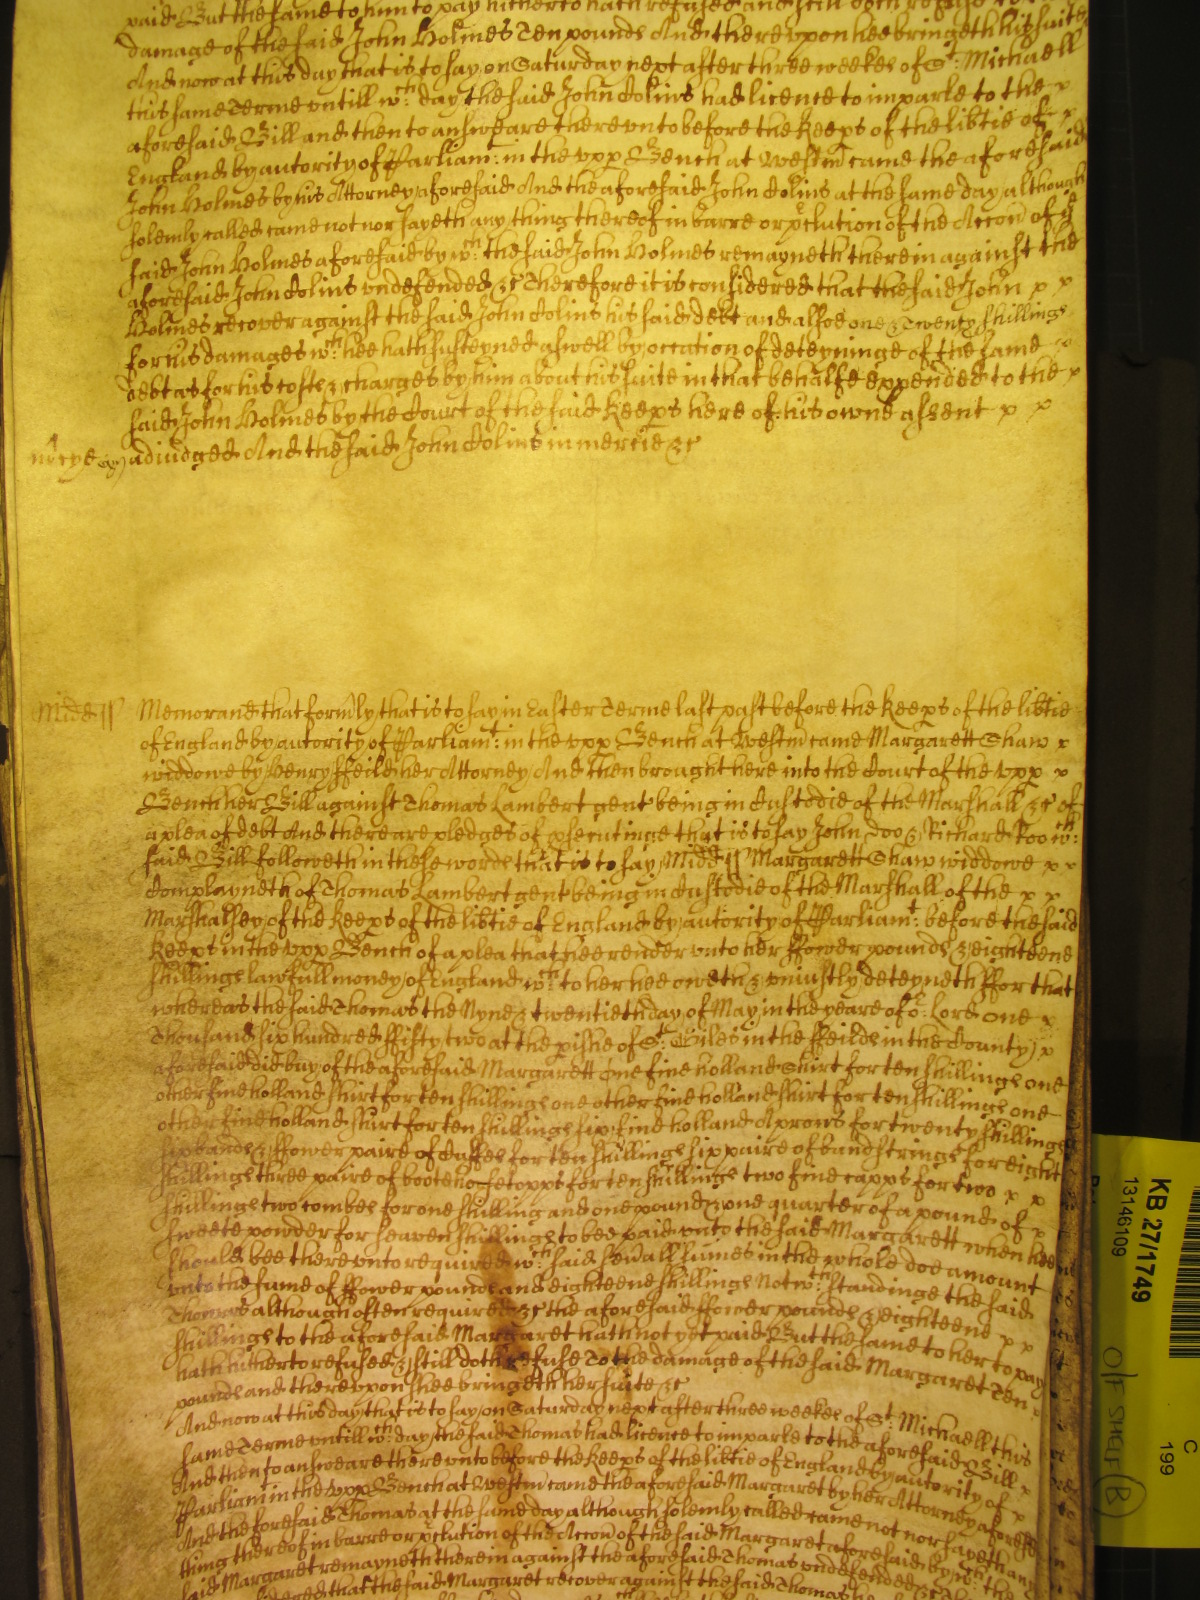 paid But the same to him to pay hitherto hath refused and still doth refuse to
damage of the said John Holmes Ten pounds And thereupon hee bringeth his suite
And now at this day that is to say on Saturday next after three weekes of St. Michaell
this same Terme untill wch. day the said John Colins had licence to imparle to the x
aforesaid Bill and then to answeare thereunto before the Keeps of the libtie of x
England by autority of Parliamt. in the upp Bench at Westm came the aforesaid
John Holmes by his Attorney aforesaid And the aforesaid John Colins at the same day although
solemly called came not nor sayeth any thing thereof in barre or pclution of the Accon of ye
said John Holmes aforesaid by wch. the said John Holmes remayneth therein against the
aforesaid John Colins undefended &c Therefore it is considered that the said John x x
Holmes recover against the said John Colins his said debt and alsoe one & Twenty shillings
for his damages wch. hee hath susteyned aswell by occation of deteyninge of the same x
debt as for his costes & charges by him about his suite in that behalfe expended to the x
said John Holmes by the Court of the said Keeps here of his owne assent x x
adiudged And the said John Colins in mercie &c
Midd ss Memorand that formly that is to say in Easter Terme last past before the Keeps of the libtie
of England by autority of Parliamt. in the upp Bench at Westm came Margarett Shaw x
widdowe by Henry ffeild her Attorney And then brought here into the Court of the upp x
Bench her Bill against Thomas Lambert gent being in Custodie of the Marshall &c of
a plea of debt And there are pledges of psecutinge that is to say John Doo & Richard Roo wch.
said Bill followeth in these wordes that is to say Midd ss Margarett Shaw widdowe x x
Complayneth of Thomas Lambert gent being in Custodie of the Marshall of the x x
Marshalsey of the Keeps of the libtie of England by autority of Parliamt. before the said
Keeps in the upp Bench of a plea that hee render unto her ffower poundes & eighteene
shillings lawfull money of England wch. to her hee oweth & uniustly deteyneth ffor that
whereas the said Thomas the Nyne & twentieth day of May in the yeare of or. Lord One x
Thousand six hundred ffifty two at the pishe of St. Giles in the ffeildes in the County x
aforesaid did buy of the aforesaid Margarett One fine holland Shirt for ten shillings one
other fine holland shirt for ten shillings one other fine holland shirt for ten shillings one
other fine holland shirt for ten shillings six fine holland Aprons for twenty shillings
six bandes & ffower paire of Cuffes for ten shillings six paire of bandstrings for eight
shillings three paire of boote hose topps for ten shillings two fine capps for two x x
shillings two combes for one shilling and one pound & one quarter of a pound of x
sweete powder for seaven shillings to bee paid unto the said Margarett when hee
should bee thereunto required wch. said sevall sumes in the whole doe amount
unto the sume of ffower poundes and eighteene shillings Notwth.standinge the said
Thomas although often required &c the aforesaid ffower poundes & eighteene x x
shillings to the aforesaid Margaret hath not yet paid But the same to her to pay
hath hitherto refused & still doth refuse To the damage of the said Margaret Ten
poundes and thereupon shee bringeth her suite &c
And now at this day that is to say on Saturday next after three weekes of St. Michaell this
same Terme untill wch. day the said Thomas had licence to imparle to the aforesaid Bill x
And then to answeare thereunto before the Keeps of the libtie of England by autority of x
Parliam in the upp Bench at Westm came the aforesaid Margaret by her Attorney aforesd
And the foresaid Thomas at the same day although solemly called came not nor sayeth any
thing thereof in barre or pclution of the Accon of the said Margaret aforesaid by wch. the
said Margaret remayneth therein against the aforesaid Thomas undefended &c
that the said Margaret recover against the said Thomas
KB 27/1749
13146109
C
199
O/F SHELF B